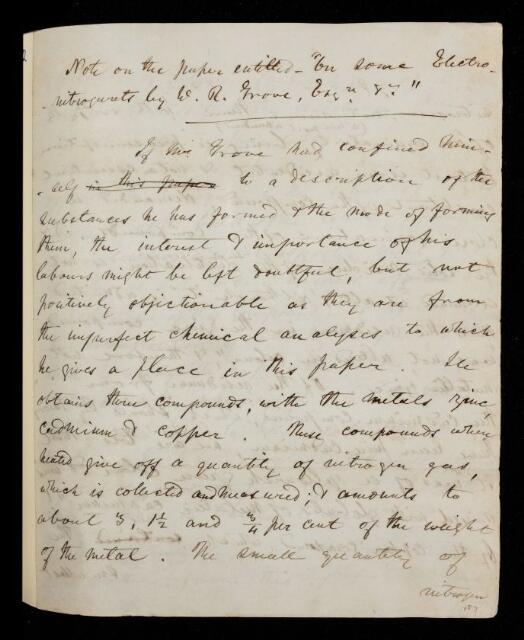 Note on the paper entitled - "On some Electro-
-nitrogurets by W. R. Grove, Esqr. &c."
If Mr. Grove had confined him-
-self in this paper to a description of the
substances he has formed & the mode of forming
them, the interest & importance of his
labours might be left doubtful, but not
positively objectionable as they are from
the imperfect chemical analyses to which
he gives a place in this paper. He
obtains three compounds, with the metals zinc,
cadmium & copper. These compounds when
heated give off a quantity of nitrogen gas,
which is collected and measured; & amounts to
about 3, 1½ and ¾ per cent of the weight
of the metal. The small quantity of
nitrogen